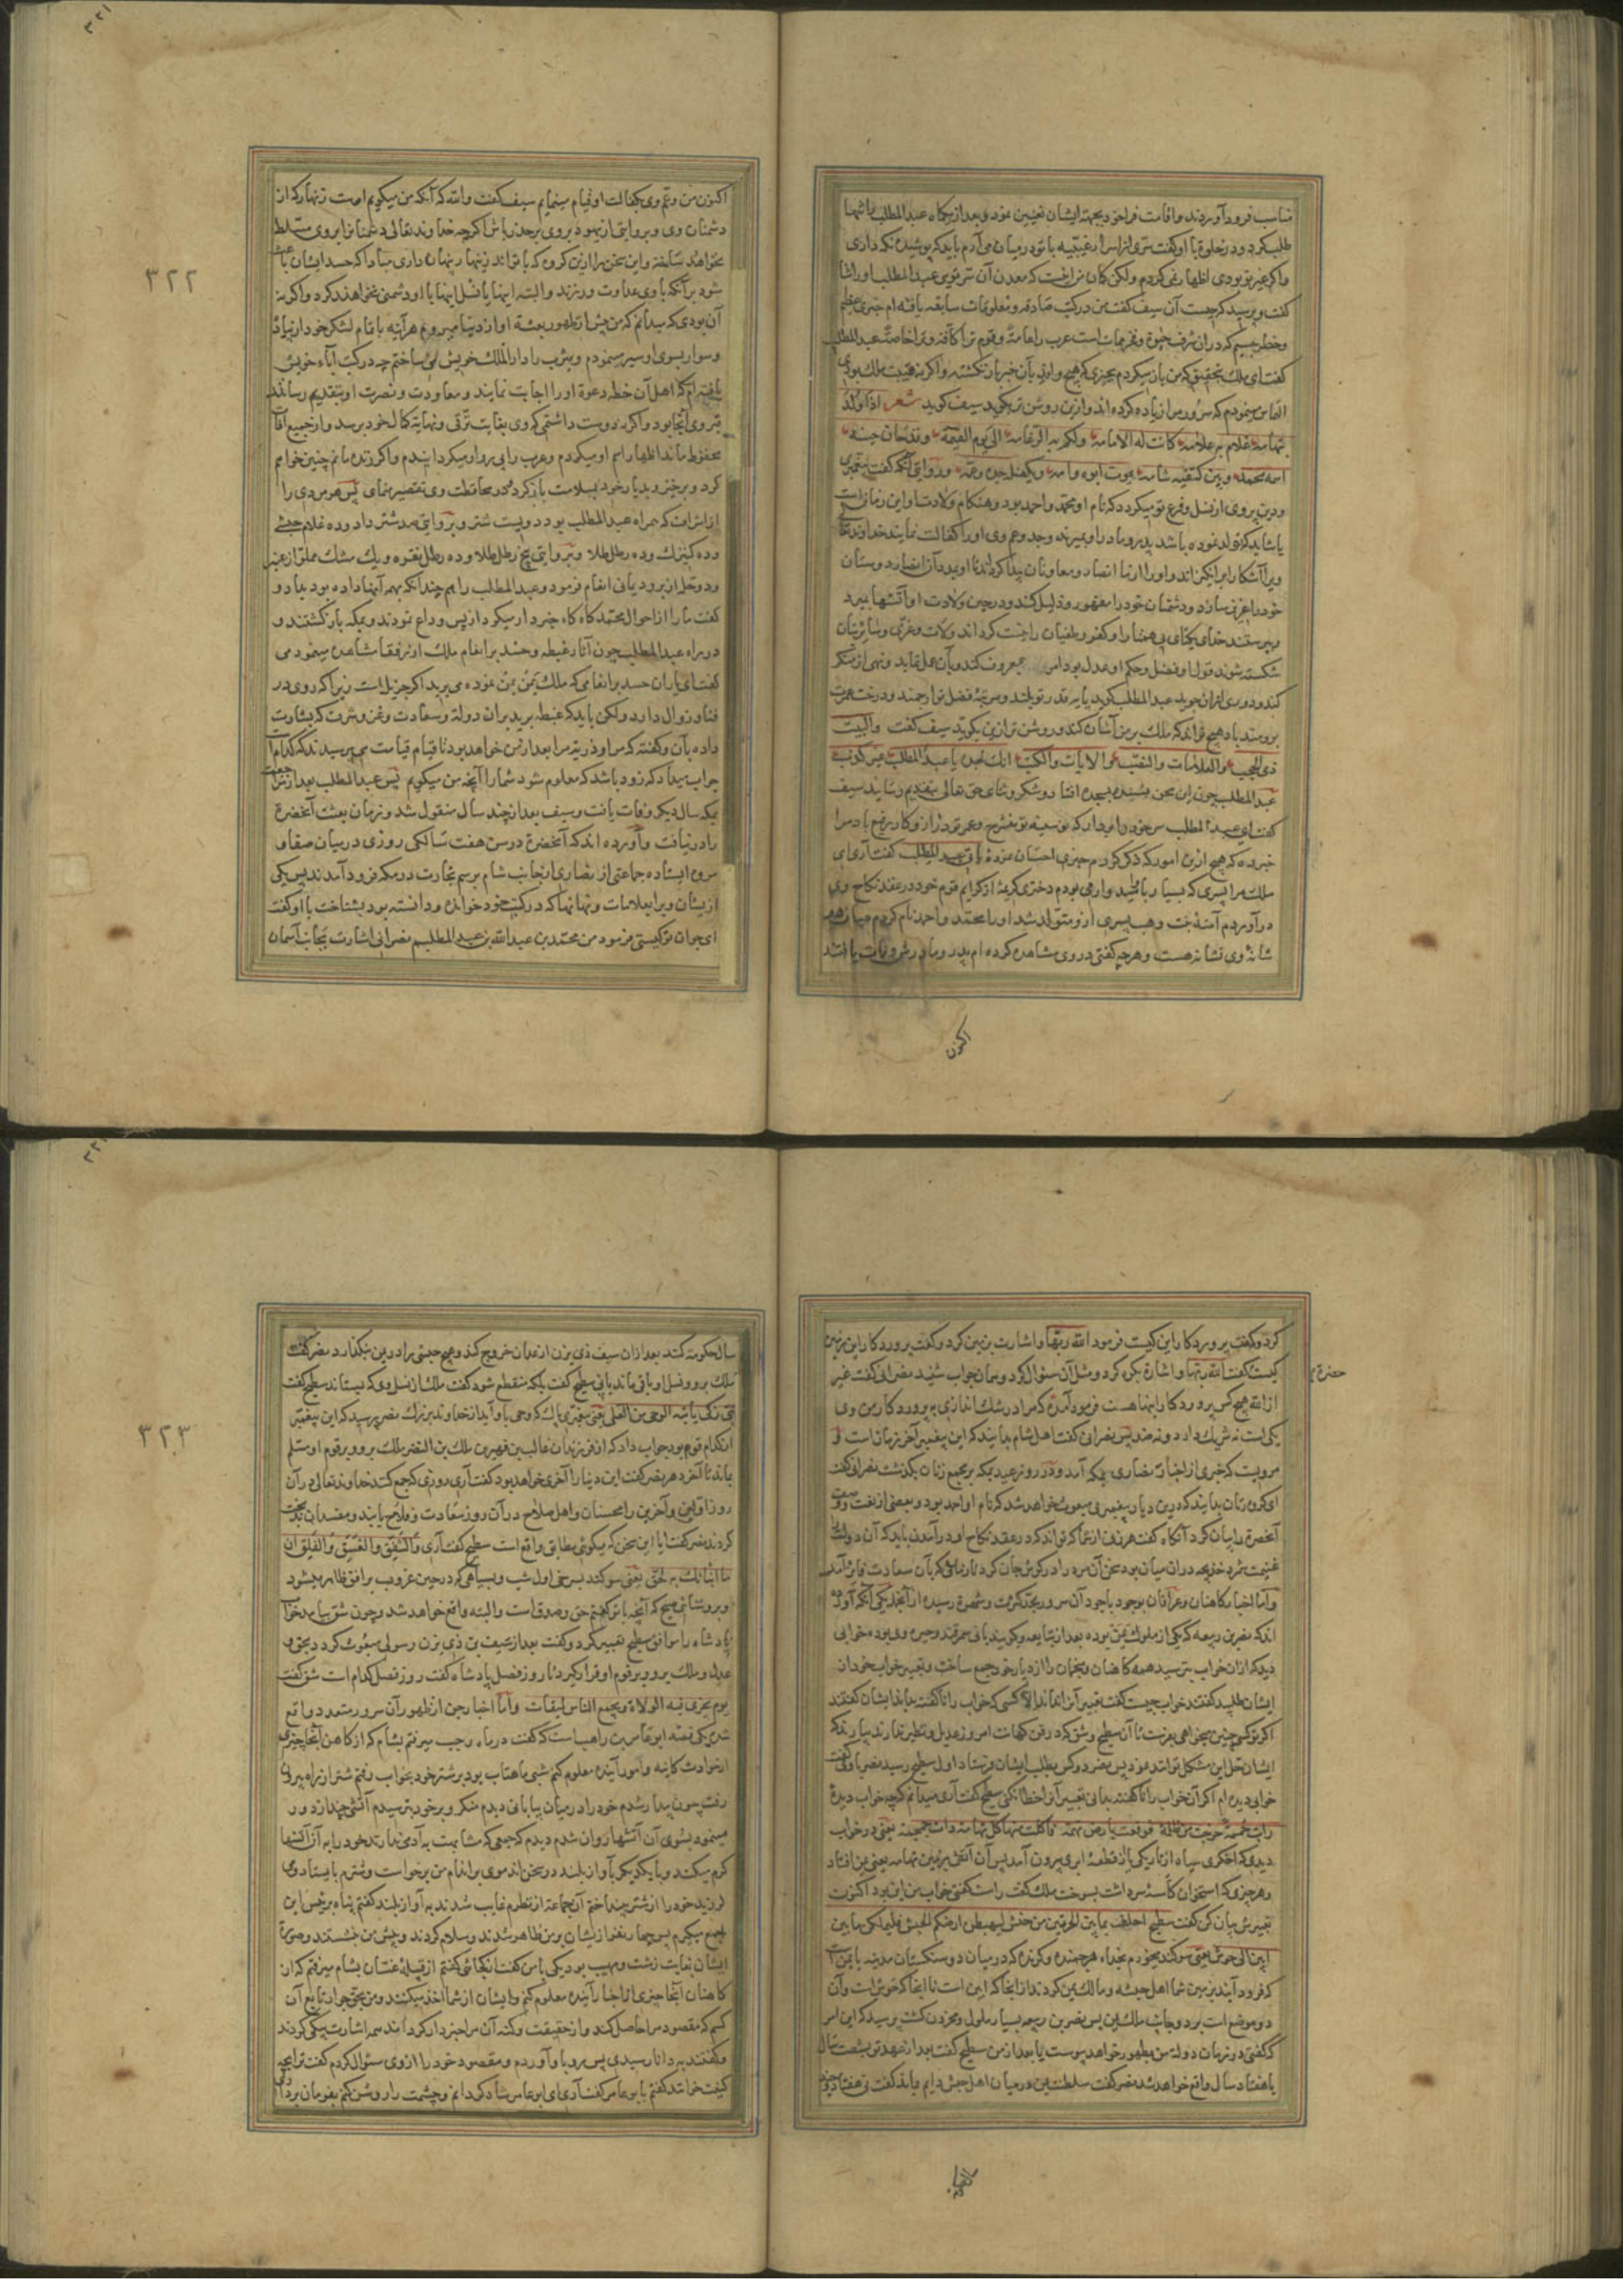 مناسب فرود آوردند واقامت فراخور بجهة ایشان تعیین نمود وبعد از یکماه عبد المطلب را تنها
طلب کرد ودر خلوة با او کفت سری از اسرار غیبیه با تو در میان می آرم باید که پوشیده نکه داری
واکر غیر تو بودی اظهار نمی کردم ولکن کمان من اینست که معدن آن سر تویی عبد المطلب او را ثنا
کفت وپرسید که چیست آن سیف کفت من در کتب صادقه ومعلومات سابقه یافته ام خبری عظیم
وخطر جسیم که در ان شرف حیوة وفخر ممات است عرب را عامة وقوم ترا کافة وترا خاصة عبد المطلب
کفت ای ملک بتحقیق که من باز میکردم بچیزی که هیچ وافدی بآن خبر باز نکشته واکر نه هیبت ملک بودی
التماس مینمودم که سرور مرا زیاده کرده اند وازین روشن تر بکوید سیف کوید شعر اذا ولد
بتهامه غلام به علامه کانت له الامامه ولکم به الزعامه الی یوم القیمه
اسمه محمد وبین کتفیه شامه یموت ابوه وامه ویکفله جده وعمه ودر روایتی آنکه کفت پیغمبری
یا شاید که تولد نموده باشد پدر ومادر او بمیرند وجد وعم وی او را کفالت نمایند خداوند تعالی
ویرا آشکارا برانکیزاند واو را از ما انصار ومعاونان پیدا کرداند تا او بمدد آن انصار دوستان
خود را عزیز سازد ودشمنان خود را مقهور وذلیل کند ودر حین ولادت او آتشها بمیرد
وبپرستند خدای یکتای بی همتا را وکفر وطغیان را پست کرداند ولات وعزی وسائر بتان
شکسته شوند قول او فصل وحکم او عدل بود امر بمعروف کند وبآن عمل نماید ونهی از منکر
کند ودوری ازان جوید عبد المطلب کوید پایه قدر تو بلند ومرتبه فضل تو ارجمند ودرخت عمرت
برومند باد هیچ تواند که ملک بر من آشان کند وروشن تر ازین بکوید سیف کفت والبیت
ذی الحجب والعلامات والنصب والآیات والکتب انک لجده یا عبد المطلب غیر کذب
عبد المطلب چون این سخن بشنید بسجده افتاد وشکر وثنای حق تعالی بتقدیم رسانید سیف
کفت ای عبد المطلب سر خود را بردار که بوسینه تو منشرح وعمر تو دراز وکار تو رفیع باد مرا
خبر ده که هیچ ازین امور که ذکر کردم چیزی احساس نموده یا نی عبد المطلب کفت آری ای
ملک مرا پسری که بسیار ربا محبت وارمی بودم دختری کریمه از کرایم قوم خود در عقد نکاح وی
در آوردم آمنه بنت وهب پسری ازو متولد شد او را محمد واحمد نام کردم میان هر دو
شانه وی نشانه هست وهر چه کفتی در وی مشاهده کرده ام پدر ومادرش وفات یافتند
اکنون
اکنون من وعم وی بکفالت او قیام مینمایم سیف کفت والله که آنکه من میکویم اوست زنهار که از
دشمنان وی وبروایتی از یهود بر وی بر حذر باش اکرچه خداوند تعالی دشمنانرا بر وی مسلط
نخواهد ساخت واین سخن را ازین کروه که با تواند زنهار پنهان داری مبادا که حسد ایشان باعث
شود بر آنکه با وی عداوت ورزند والبته اینها یا نسل اینها با او دشمنی خواهند کرد واکر نه
آن بودی که میدانم که من پیش از ظهور بعثة او از دنیا میروم هر آینه با تمام لشکر خود از پیاده
وسوار بسوی او سیر مینمودم ویثرب را دار الملک خویش می ساختم چه در کتب آباء خویش
یافته ام که اهل آن خطه دعوة او را اجابت نمایند ومعاودت ونصرت او بتقدیم رسانند
قبر وی آنجا بود واکر نه دوست داشتمی که وی بغایت ترقی ونهایة کمال خود برسد واز جمیع آفات
محفوظ ماند اظهار اسم او میکردم وعرب را پی رو او میکردانیدم واکر زنده مانم چنین خواهم
کرد وبرخیزید بدیار خود بسلامت باز کردید ودر محافظت وی تقصیر منمای پس هر مردی را
از اشراف که همراه عبد المطلب بود دویست شتر وبروایتی صد شتر داد وده غلام حبشی
وده کنیزک وده رطل طلا وبروایتی پنج رطل طلا وده رطل نقره ویک مشک مملو از عنبر
ودو حله از برود یمانی انعام فرمود وعبد المطلب را هم چندانکه بهمه آنها داده بود بداد و
کفت ما را از احوال محمد کاه کاه خبردار میکردان پس وداع نمودند وبمکه باز کشتند و
در راه عبد المطلب چون آثار غبطه وحسد بر انعام ملک از رفقا مشاهده مینمود می
کفت ای یاران حسد بر انعامی که ملک یمن بمن نموده می برید اکرچه جزیل است زیرا که روی در
فنا وزوال دارد ولکن باید که غبطه برید بران دولة وسعادت وعز وشرف که بشارت
داده بآن وکفته که مرا وذریة مرا بعد از من خواهد بود تا قیام قیامت می پرسیدند که کدام است
جواب میداد که زود باشد که معلوم شود شما را آنچه من میکویم پس عبد المطلب بعد از مراجعت
بمکه سال دیکر وفات یافت وسیف بعد از چند سال منقول شد وزمان بعثت آنحضرة
را در نیافت وآورده اند که آنحضرة در سن هفت سالکی روزی در میان صفا و
مروه ایستاده جماعتی از نصاری از جانب شام برسم تجارت در مکه فرود آمدند پس یکی
از یشان ویرا بعلامات ونهانها که در کتب خود خوانده ودانسته بود بشناخت با او کفت
ای جوان تو کیستی فرمود من محمد بن عبد الله بن عبد المطلبم نصرانی اشارت بجانب آسمان
۳۲۲
کرد وکفت پروردکار این کیست فرمود الله ربها واشارت بزمین کرد وکفت پروردکار این زمین
کیست کفت الله ربها واشارة بکوه کرد ومثل آن سئوال کرد وهمان جواب شنید نصرانی کفت غیر
حضرة
از الله هیچ کس پروردکار اینها هست فرمود آمده که مرا در شک اندازی به پروردکار من وی
یکی است نه شریک دارد ونه ضد پس نصرانی کفت اهل شام بدانید که این پیغمبر آخر زمان است و
مرویست که خبری از اخبار نصاری بمکه آمد ودر روز عید بمکه بر جمیع زنان بکذشت نصرانی کفت
ای کروه زنان بدانید که درین دیار پیغمبری مبعوث خواهد شد که نام او احمد بود وبعضی از نعت وصفت
آنحضرة را بیان کرد آنکاه کفت هر زنی از شما که تواند که در عقد نکاح او در آمدن باید که آن دولت
غنیمت شمرد خدیجه دران میان بود سخن آن مرد را در کوش جان کرد تا زمانی که بآن سعادت فائز آمد
واما اخبار کاهنان وعرافان بوجود باجود آن سرور بحد کثرت وشهرة رسیده از آنجمله یکی آنکه آورده
اند که نضر بن ربیعه که یکی از ملوک یمن بوده بعد از تبابعه وکویند بانی سمرقند وحیره وی بوده خوابی
دید که ازان خواب بترسید همه کاهنان ومنجمان را از دیار خود جمع ساخت وتعبیر خواب خود از
ایشان طلبید کفتند خواب چیست کفت تعبیر آنرا نداند الا کسی که خواب را ناکفته بداند ایشان کفتند
اکر تو کسی چنین میخواهی بفرست تا آن سطیح وشق که در فن کهانت امروز عدیل ونظیر ندارند بیارند که
ایشان حل این مشکل توانند نمود پس نضر دو کس بطلب ایشان فرستاد اول سطیح رسید نضر با وی کفت
خوابی دیده ام اکر آن خواب را ناکفته بدانی تعبیر آنرا خطا نکنی سطیح کفت آری میدانم که چه خواب دیدۀ
رایت حممة خرجت من ظلمة فوقعت بارض تهمة فاکلت منها کل تهامة ذات جمجمة یعنی در خواب
دیدی که اخکری سیاه از تاریکی یا از قطعۀ ابری بیرون آمد پس آن آتش بزمین تهامه یعنی یمن افتاد
وهر چیزی که استخوان کاسۀ سر داشت بسوخت ملک کفت راست کفتی خواب من این بود اکنون
تعبیرش بیان کن کفت سطیح احلف بما بین الحرتین من حنش لیهبطن ارضکم الحبش فلیملکن ما بین
ابین الی جرش یعنی سوکند میخورم بخدای هر جنبنده وکزنده که در میان دو سنکستان مدینه یا یمن است
که فرود آیند بزمین شما اهل حبشه ومالک یمن کردند از ابجا که ابین است تا آنجا که جرش است وآن
دو موضع است بر دو جانب ملک یمن پس نضر بن ربیعه بسیار ملول ومحزون کشت پرسید که این امر
که کفتی در زمان دولة من بظهور خواهد پیوست یا بعد از من سطیح کفت بعد از عهد تو بشصت سال
یا هفتاد سال واقع خواهد شد نضر کفت سلطنت یمن در میان اهل حبش دایم بماند کفت نی هفتاد
سال حکومة کنند بعد ازان سیف ذی یزن از عدن خروج کند وهیچ حبشی را در یمن نکذارد نضر کفت
ملک بر وی ونسل او باقی ماند یا نی سطیح کفت بلکه منقطع شود کفت ملک از نسل وی که بستاند سطیح کفت
نبی زکی یاتیه الوحی من العلی یعنی پیغمبری پاک که وحی باو آید از خداوند بزرک نضر پرسید که این پیغمبر
از کدام قوم بود جواب داد که از فرزندان غالب بن فهر بن مالک بن النضر ملک برو وبر قوم او مسلم
ماند تا آخر دهر نضر کفت این دنیا را آخری خواهد بود کفت آری روزی که جمع کند خداوند تعالی در آن
روز اولین وآخرین را محسنان واهل صلاح در آن روز سعادت وفلاح یابند ومفسدان بدبخت
کردند نضر کفت ایا این سخن که میکوئی مطابق واقع است سطیح کفت آری والشفق والغسق والفلق ان
ما انباتک به لحق یعنی سوکند بسرخی اول شب وبسیاهی که در حین غروب بر افق ظاهر میشود
وبروشنائی صبح که آنچه با تو کفتم حق وصدق است والبته واقع خواهد شد وچون شق بیامد خواب
پادشاه را موافق سطیح تعبیر کرد وکفت بعد از سیف بن ذی یزن رسولی مبعوث کردد بحق و
عدل وملک برو وبر قوم او قرار کیرد تا روز فصل پادشاه کفت روز فصل کدام است شق کفت
یوم یجزی فیه الولاة ویجمع الناس لمیقات واما اخبار جن از ظهور آن سرور متعدد واقع
شده یکی قصه ابو عامر بن راهب است که کفت در ماه رجب میرفتم بشام که از کاهن آنجا چیزی
از حوادث کاینه وامور آینده معلوم کنم شبی ماهتاب بود بر شتر خود بخواب رفتم شتر از راه بیرون
رفت چون بیدار شدم خود را در میان بیابانی دیدم منکر وبر خود بترسیدم آتشی چند از دور
مینمود بسوی آن آتشها روان شدم دیدم که جمعی که مشابهت به آدمی ندارند خود را به آن آتشها
کرم میکنند وبا یکدیکر بآواز بلند در سخن اند موی بر اندام من برخواست وشترم بایستاد ومی
لرزید خود را از شتر بینداختم آن جماعة از نظرم غایب شدند به آواز بلند کفتم پناه برئیس این
جمع میکیرم پس چهار نفر از یشان بر من ظاهر شدند وسلام کردند وپیش من بنشستند وصورت
ایشان بغایت زشت ومهیب بود یکی با من کفت از کجائی کفتم از قبیلۀ غسان بشام میرفتم که از
کاهنان آنجا چیزی از اخبار آینده معلوم کنم وایشان از شما اخذ میکنند ومن بحق جوار تابع آن
کسم که مقصود مرا حاصل کند واز حقیقت وکنه آن مرا خبردار کرداند همه اشارت بیکی کردند
وکفتند به دانا رسیدی پس رو باو آوردم ومقصود خود را از وی سئوال کردم کفت ترا بچه
کنیت خوانند کفتم با بو عامر کفت آری ای ابو عامر شاد کردانم وچشمت را روشن کنم بفرمان
۳۲۳